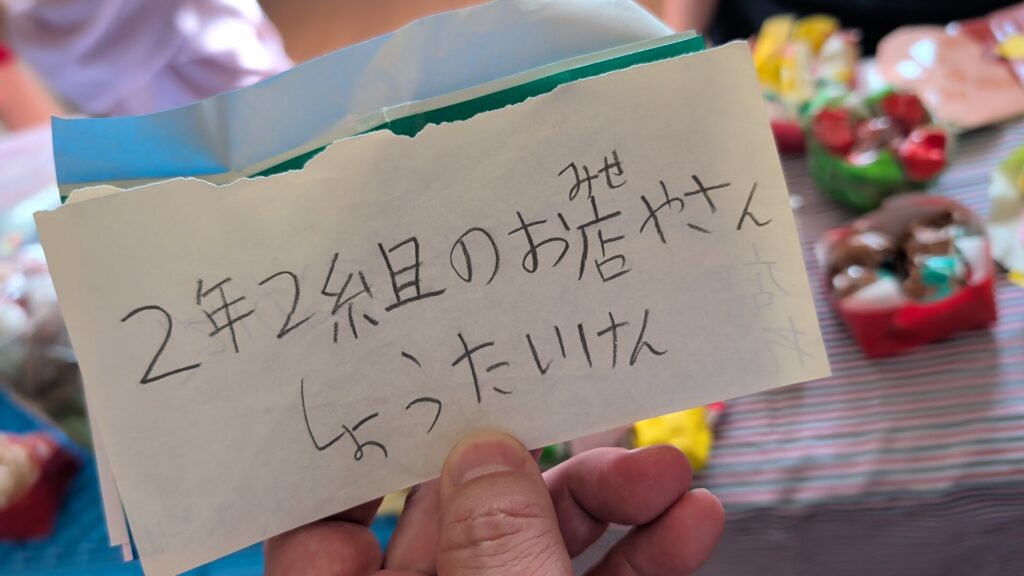 2年2組のお店やさん
みせ
しょうたいけん